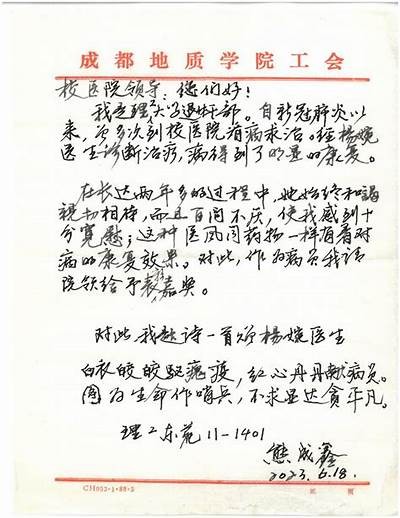 成都地质学院工会
校医院领导：您们好！
我是理工大学退休干部。自新冠肺炎以
来，曾多次到校医院看病求治。经杨婉
医生诊断治疗，病得到了明显的康复。
在长达两年多的过程中，她始终和谐
视切相待，而且百问不厌，使我感到十
分宽慰；这种医风同药物一样有着对
病的康复效果。对此，作为病员我请
院领给予表扬嘉奖。
对此我题诗一首颂杨婉医生
白衣皎皎驱瘟疫，红心丹丹献病员。
因为生命作哨兵，不求显达贪平凡。
理工东苑11-1401
熊成鑫
2023.6.18.